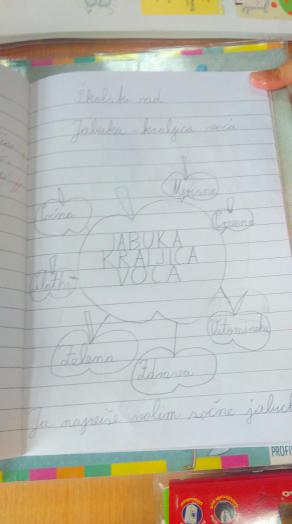 Školski rad
Jabuka - kraljica voća
Mirisna
Sočna
Crvena
JABUKA
KRALJICA
VOĆA
Slatka
Vitaminska
Zelena
Zdrava
Ja najviše volim sočne jabuk
PROFI